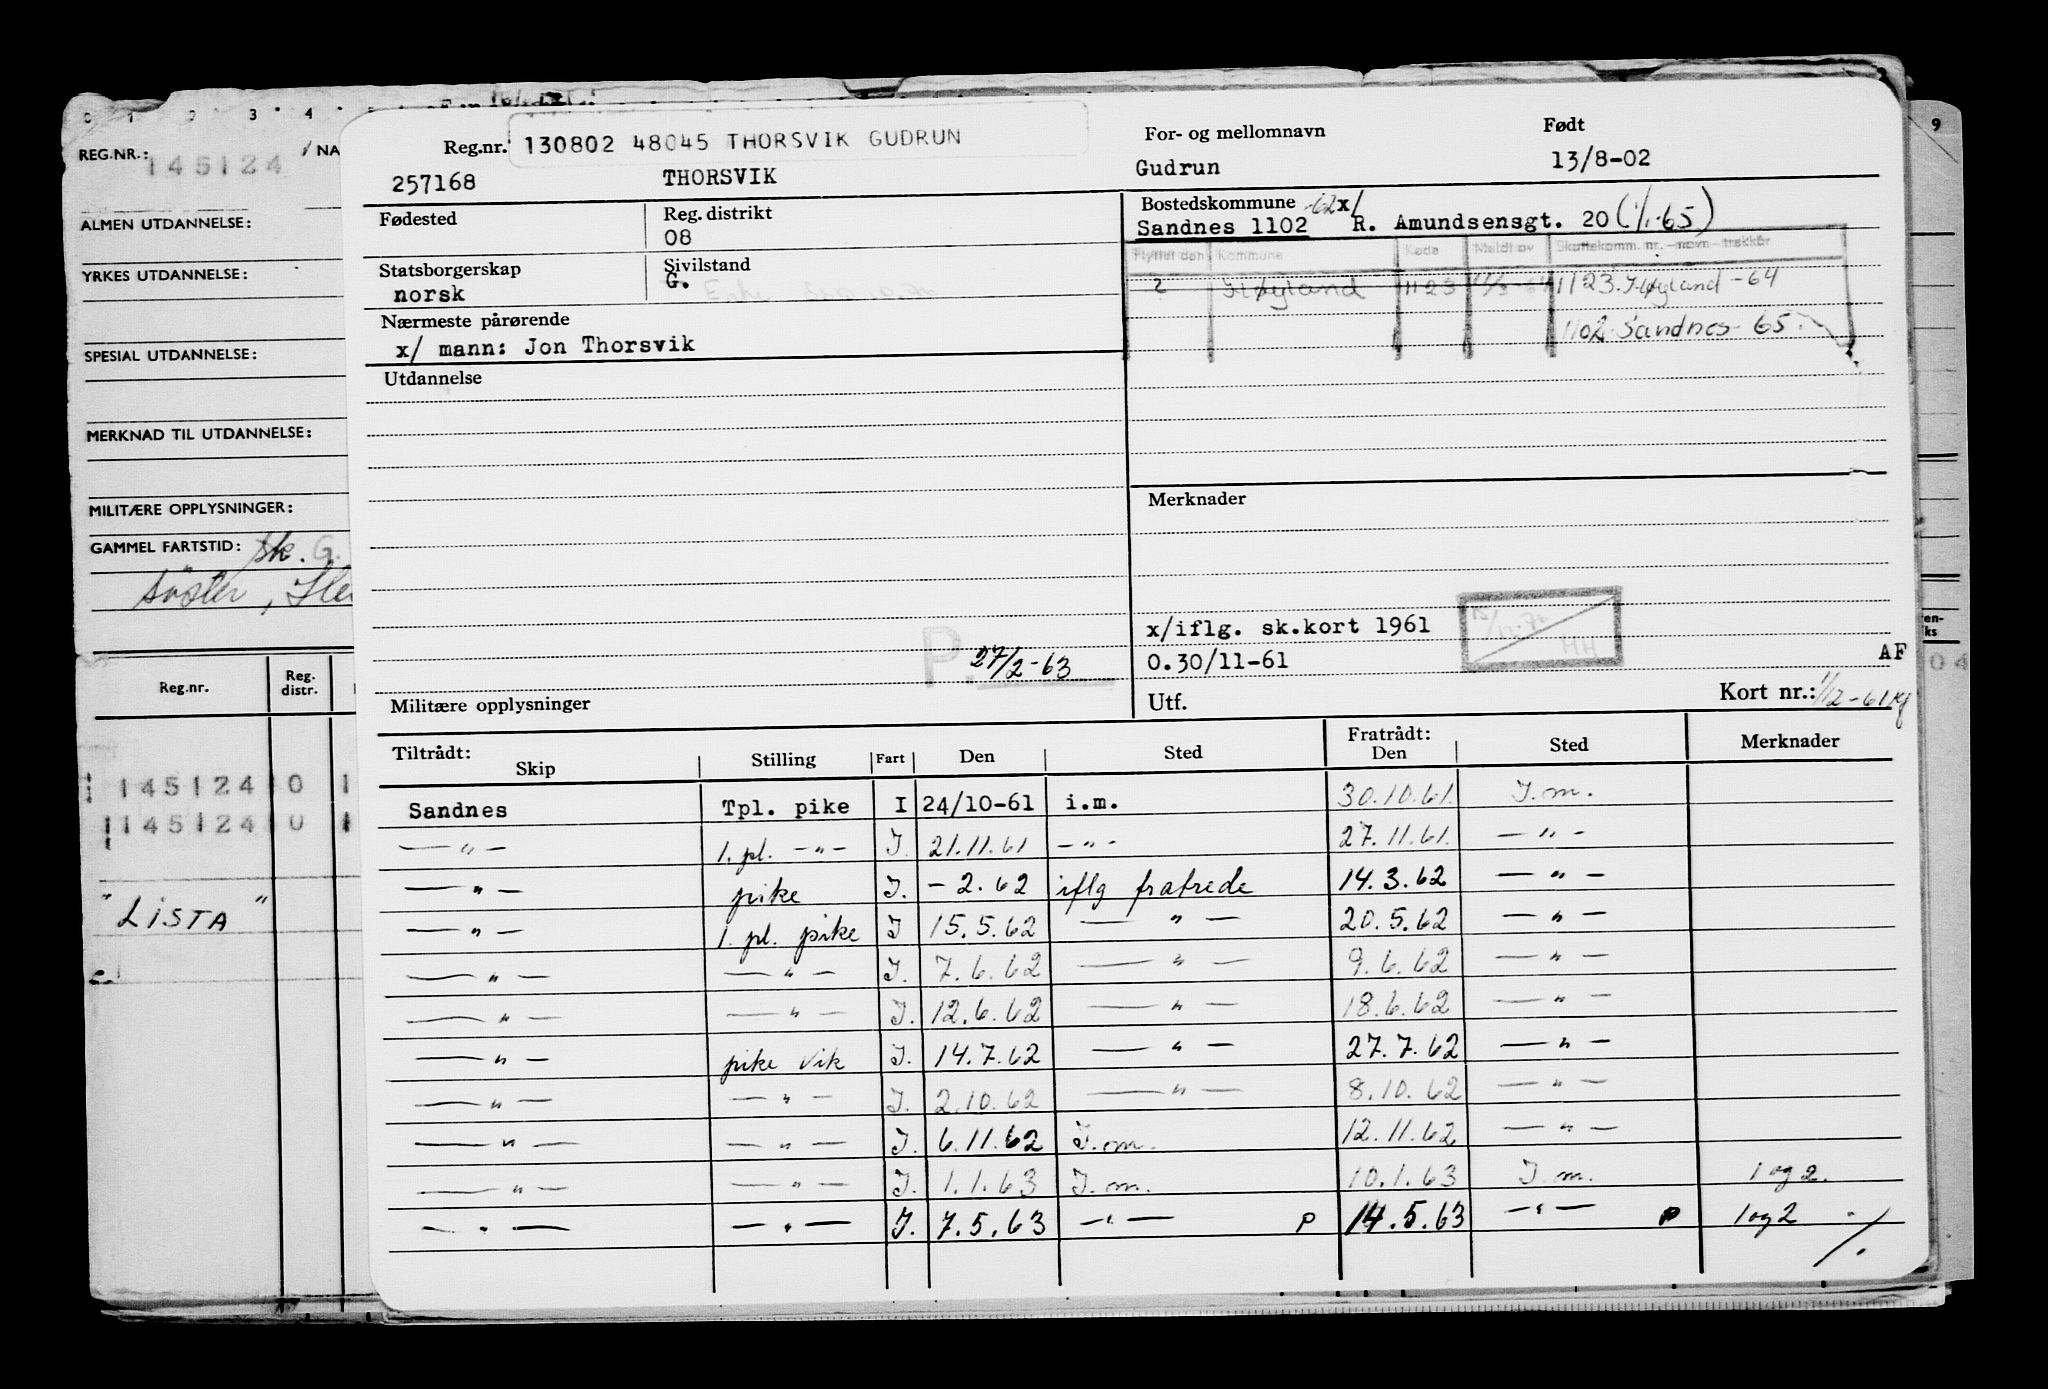 0 1 2 3 4
REG.NR.: 145124 NA
ALMEN UTDANNELSE:
YRKES UTDANNELSE:
SPESIAL UTDANNELSE:
MERKNAD TIL UTDANNELSE:
MILITÆRE OPPLYSNINGER:
GAMMEL FARTSTID: sk. G.
søster,
Reg.nr. Reg. distr.
145124 0 1
145124 0
"LISTA"
9
en-
ks
04
Reg.nr. 130802 48045 THORSVIK GUDRUN For- og mellomnavn Født
257168 THORSVIK Gudrun 13/8-02
Fødested Reg. distrikt Bostedskommune -62 x/
08 Sandnes 1102 R. Amundsensgt. 20 (1/1-65)
Flyttet den Kommune Kode Meldt av Skattekomm. nr. - navn - trekkår
Statsborgerskap Sivilstand
norsk G. Høyland 1123 1123 Høyland -64
Nærmeste pårørende 1102 Sandnes - 65.
x/ mann: Jon Thorsvik
Utdannelse
Merknader
x/iflg. sk.kort 1961
P. 27/2-63 0.30/11-61 HH AF
Militære opplysninger Utf. Kort nr.: 1/12-61
Tiltrådt: Skip Stilling Fart Den Sted Fratrådt: Den Sted Merknader
Sandnes Tpl. pike I 24/10-61 i.m. 30.10.61. I.m.
— " — 1. pl. — " — I. 21.11.61 — " — 27.11.61. — " —
— " — pike I. - 2.62 iflg fratrede 14.3.62 — " —
— " — 1. pl. pike I 15.5.62 — " — 20.5.62 — " —
— " — — " — I. 7.6.62 — " — 9.6.62 — " —
— " — — " — I. 12.6.62 — " — 18.6.62 — " —
— " — pike vik I. 14.7.62 — " — 27.7.62 — " —
— " — — " — I. 2.10.62 — " — 8.10.62 — " —
— " — — " — I. 6.11.62 I.m. 12.11.62 — " —
— " — — " — I. 1.1.63 I.m. 10.1.63 I.m. 1 og 2.
— " — — " — I. 7.5.63 — " — P 14.5.63 — " — P 1 og 2 ./.